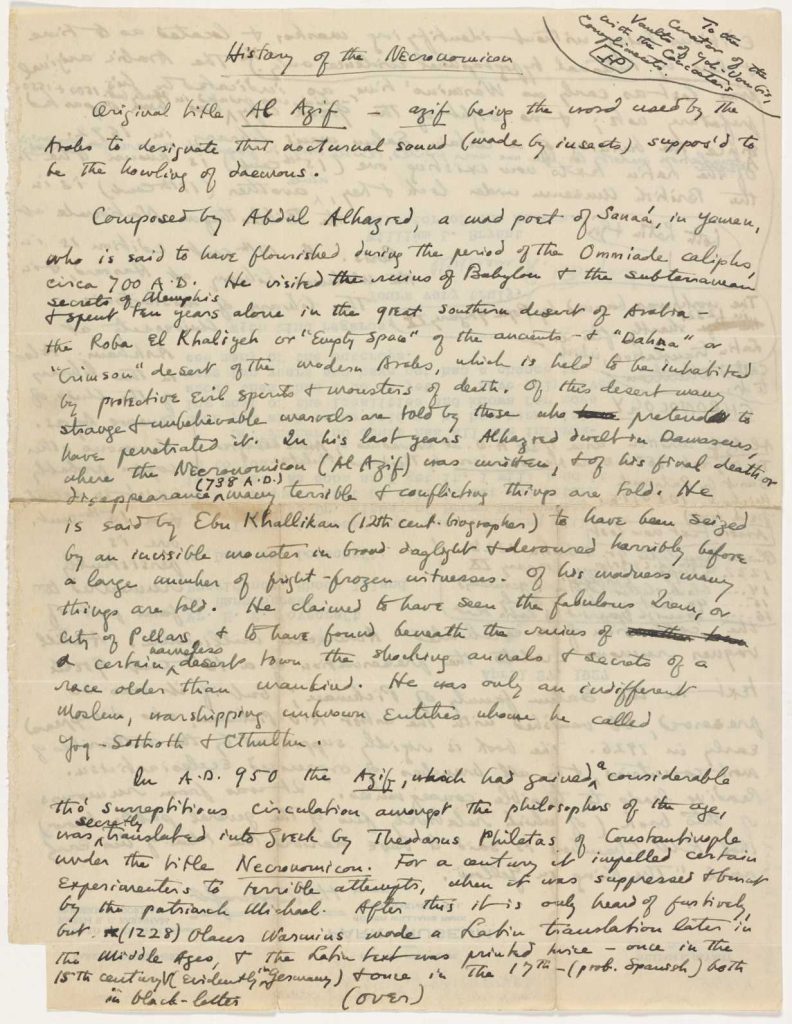 To the
Curator of the
Vaults of Yoh-Vombis,
with the Concocter's
Compliments.
HP
History of the Necronomicon
Original title Al Azif — azif being the word used by the
Arabs to designate that nocturnal sound (made by insects) suppos'd to
be the howling of daemons.
Composed by Abdul Alhazred, a mad poet of Sanaá, in Yemen,
who is said to have flourished during the period of the Ommiade caliphs,
circa 700 A.D. He visited the ruins of Babylon & the subterranean
secrets of Memphis
& spent ten years alone in the great southern desert of Arabia —
the Roba El Khaliyeh or "Empty Space" of the ancients — & "Dahna" or
"Crimson" desert of the modern Arabs, which is held to be inhabited
by protective evil spirits & monsters of death. Of this desert many
strange & unbelievable marvels are told by those who pretend to
have penetrated it. In his last years Alhazred dwelt in Damascus,
where the Necronomicon (Al Azif) was written, & of his final death or
disappearance (738 A.D.) many terrible & conflicting things are told. He
is said by Ebn Khallikan (12th cent. biographer) to have been seized
by an invisible monster in broad daylight & devoured horribly before
a large number of fright-frozen witnesses. Of his madness many
things are told. He claimed to have seen the fabulous Irem, or
City of Pillars, & to have found beneath the ruins of
a certain nameless desert town the shocking annals & secrets of a
race older than mankind. He was only an indifferent
Moslem, worshipping unknown Entities whom he called
Yog-Sothoth & Cthulhu.
In A.D. 950 the Azif, which had gained a considerable
tho' surreptitious circulation amongst the philosophers of the age,
was secretly translated into Greek by Theodorus Philetas of Constantinople
under the title Necronomicon. For a century it impelled certain
experimenters to terrible attempts, when it was suppressed & burnt
by the patriarch Michael. After this it is only heard of furtively,
but (1228) Olaus Wormius made a Latin translation later in
the Middle Ages, & the Latin text was printed twice — once in the
15th century (evidently in Germany) & once in the 17th — (prob. Spanish) both
in black-letter (over)